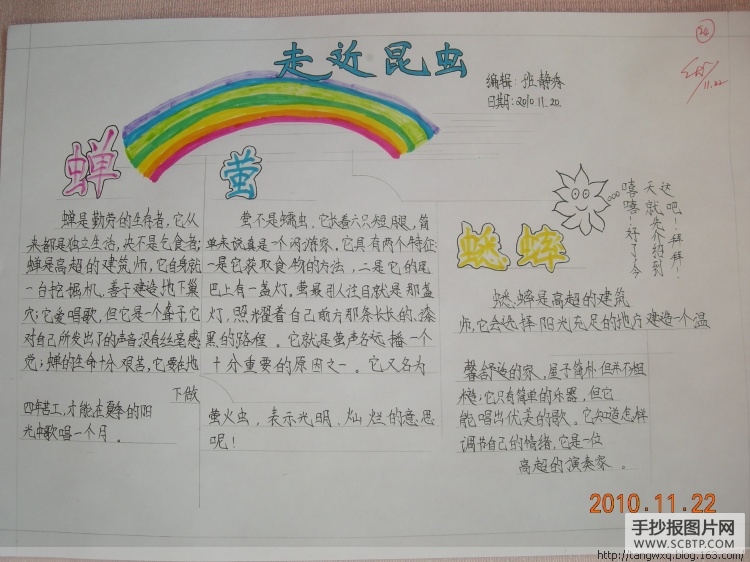 走近昆虫
编辑：班静秀
日期：2010.11.20.
11.22
蝉
蝉是勤劳的生存者，它从
来都是独立生活，决不是乞食者；
蝉是高超的建筑师，它自身就
一台挖掘机，善于建造地下巢
穴；它爱唱歌，但它是一个聋子，它
对自己所发出了的声音没有丝毫感
觉；蝉的生命十分艰苦，它要在地
下做
四年苦工，才能在夏季的阳
光中歌唱一个月。
萤
萤不是蠕虫，它长着六只短腿，简
单来说真是一个闲游家，它具有两个特征：
一是它获取食物的方法，二是它的尾
巴上有一盏灯。萤最引人注目就是那盏
灯，照耀着自己前方那条长长的、漆
黑的路程。它就是萤声名远播一个
十分重要的原因之一。它又名为
萤火虫，表示光明、灿烂的意思
呢！
嘻嘻！好了！今
天就先介绍到
这吧！拜拜！
蟋蟀
蟋蟀是高超的建筑
师，它会选择阳光充足的地方建造一个温
馨舒适的家，屋子简朴但并不粗
糙；它只有简单的乐器，但它
能唱出优美的歌。它知道怎样
调节自己的情绪，它是一位
高超的演奏家。
2010.11.22
手抄报图片网
WWW.SCBTP.COM
http://tangwxq.blog.163.com/